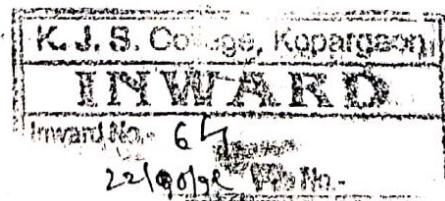 K. J. S. College, Kopargaon
INWARD
Inward No.- 64
No.-